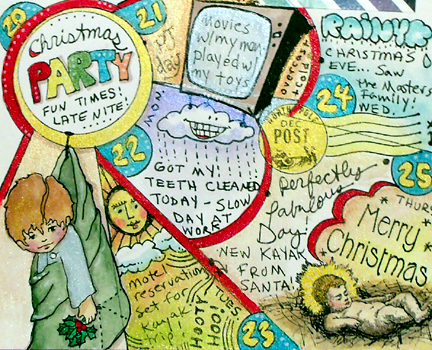 20
Christmas
PARTY
FUN TIMES!
LATE NITE!
21
day
Movies
w/my man
played w/
my toys
overcast
cold
RAINY
CHRISTMAS
EVE... Saw
the Masters
Family!
WED.
24
NORTH POLE
DEC
POST
22
GOT MY
TEETH CLEANED
TODAY - SLOW
DAY AT
WORK
25
THURS
Perfectly
fabulous
Day!
NEW KAYAK
FROM
SANTA!
Merry
Christmas
motel
reservations
set for
kayak
trip!
HOOTY
HOO!
TUES
23